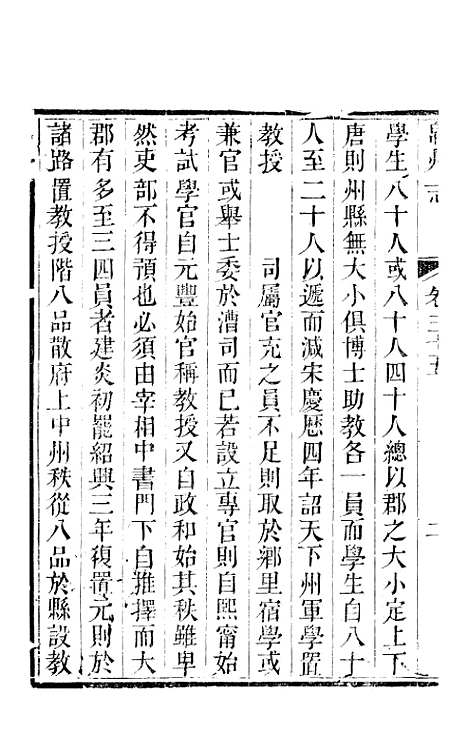 志
卷三十五
二
學生八十人或八十人四十人總以郡之大小定上下
唐則州縣無大小俱博士助教各一員而學生自八十
人至二十人以遞而減宋慶歷四年詔天下州軍學置
教授　司屬官充之員不足則取於鄉里宿學或
兼官或舉士委於漕司而已若設立專官則自熙甯始
考試學官自元豐始官稱教授又自政和始其秩雖卑
然吏部不得預也必須由宰相中書門下自推擇而大
郡有多至三四員者建炎初罷紹興三年復置元則於
諸路置教授階八品散府上中州秩從八品於縣設教